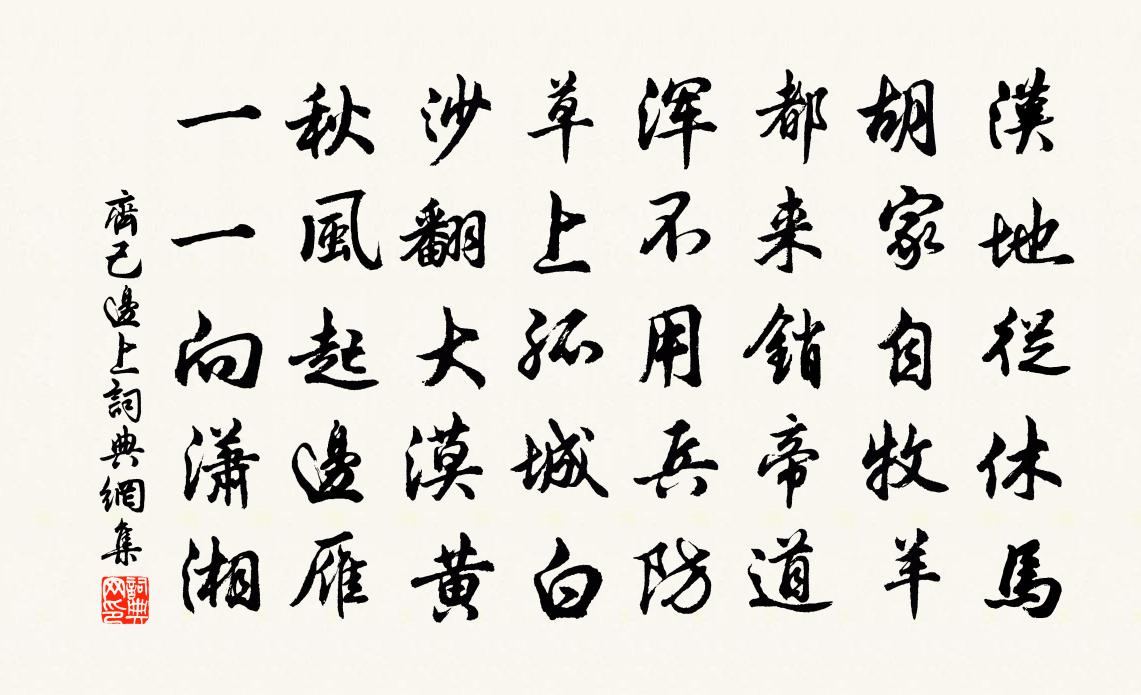 漢地從休馬
胡家自牧羊
都来銷帝道
渾不用兵防
草上孤城白
沙翻大漠黃
秋風起邊雁
一一向瀟湘
齊己邊上詞典網集
詞典网印